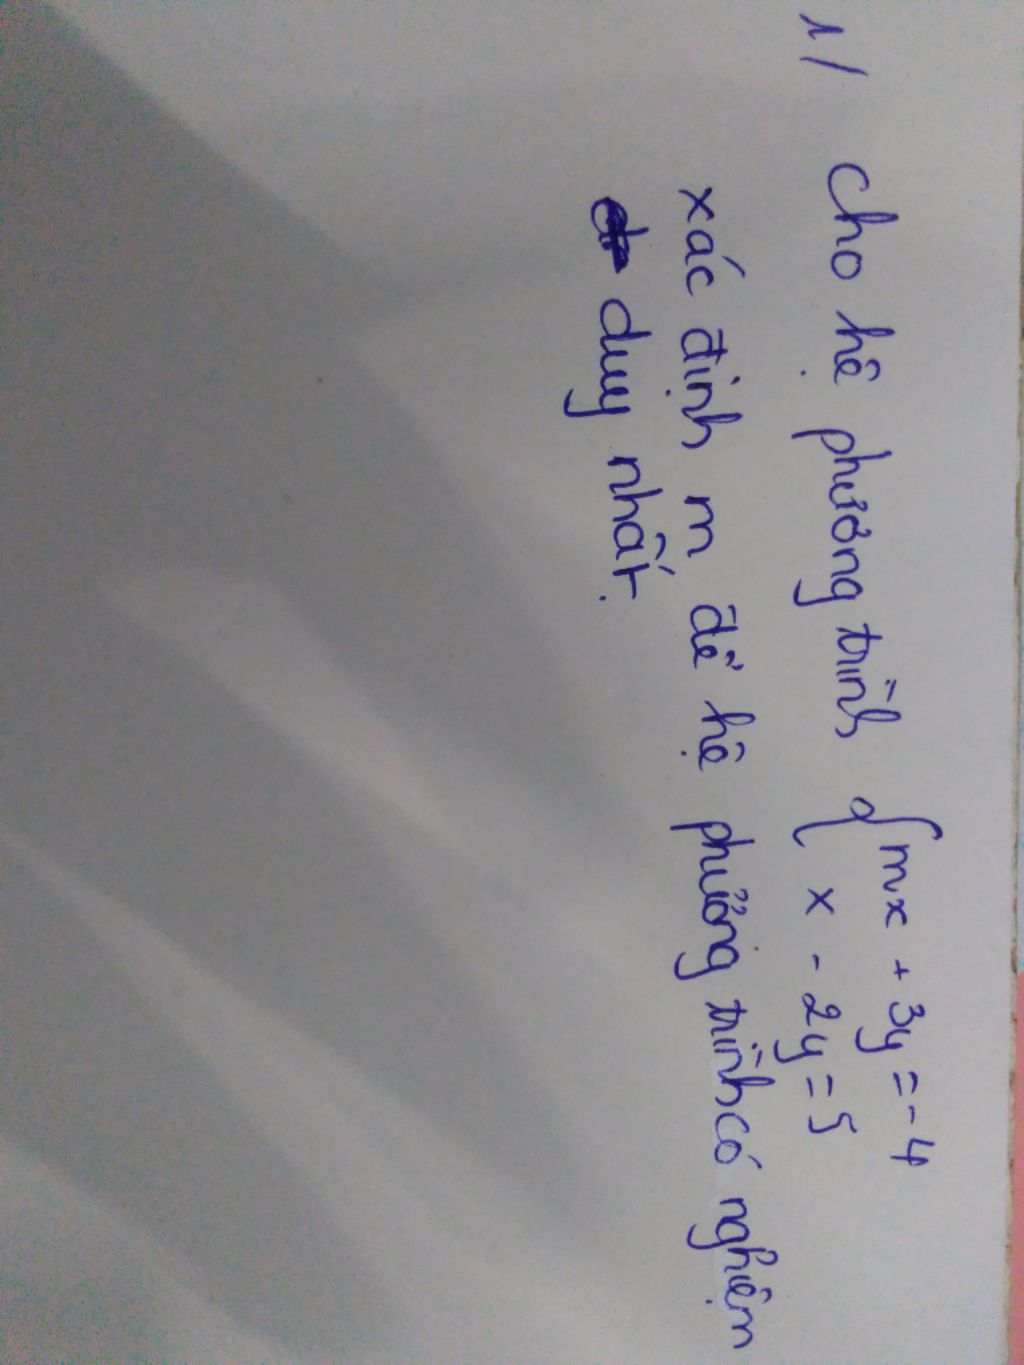 1/ Cho hệ phương trình { mx + 3y = -4
x - 2y = 5
xác định m để hệ phương trình có nghiệm
duy nhất.